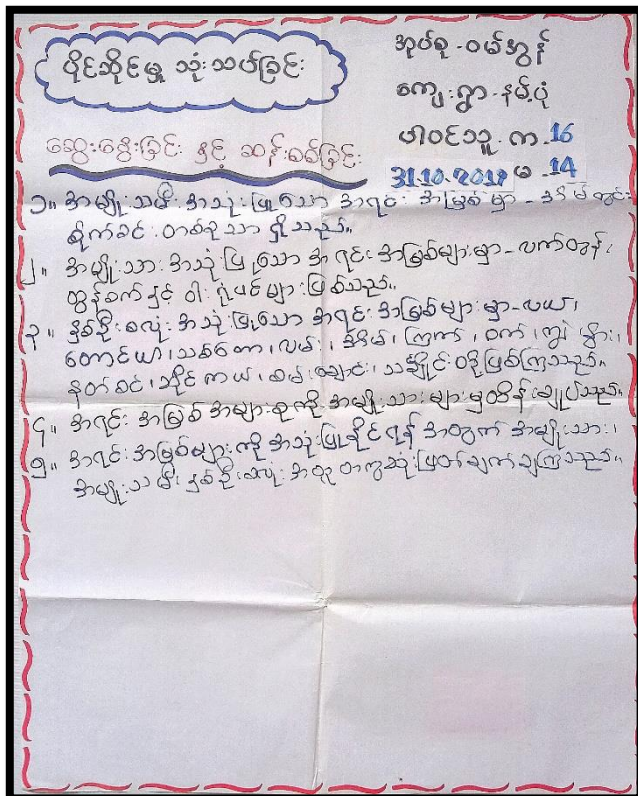 ပိုင်ဆိုင်မှု သုံးသပ်ခြင်း
အုပ်စု - ဝမ်အွန်
ကျေးရွာ - နမ့်ပုံ
ပါဝင်သူ - က - 16
မ - 14
31.10.2017
ဆွေးနွေးခြင်း နှင့် ဆန်းစစ်ခြင်း
၁။ အမျိုးသမီး အသုံးပြုသော အရင်းအမြစ်မှာ - အိမ်တွင်း
စိုက်ခင်း တစ်ခုသာ ရှိသည်။
၂။ အမျိုးသား အသုံပြုသော အရင်းအမြစ်များမှာ - လက်တွန်း
ထွန်စက်နှင့် ဝါးရုံပင်များ ဖြစ်သည်။
၃။ နှစ်ဦးစလုံး အသုံးပြုသော အရင်းအမြစ်များမှာ - လယ်၊
တောင်ယာ၊ သစ်တော၊ လမ်း၊ အိမ်၊ ကြက်၊ ဝက်၊ ကျွဲ၊ နွား၊
နတ်စင်၊ ဆိုင်ကယ်၊ စမ်းချောင်း၊ သင်္ချိုင်း တို့ဖြစ်ကြသည်။
၄။ အရင်းအမြစ် အများစုကို အမျိုးသားများမှထိန်းချုပ်သည်။
၅။ အရင်းအမြစ်များကို အသုံးပြုနိုင်ရန် အတွက် အမျိုးသား၊
အမျိုးသမီး နှစ်ဦးစလုံး အတူတကွဆုံးဖြတ်ချက်ချကြသည်။